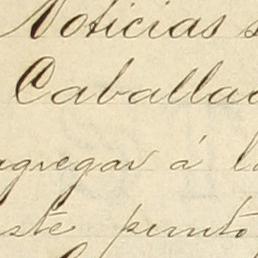 Noticias s
Caballad
agregar á l
ste punto